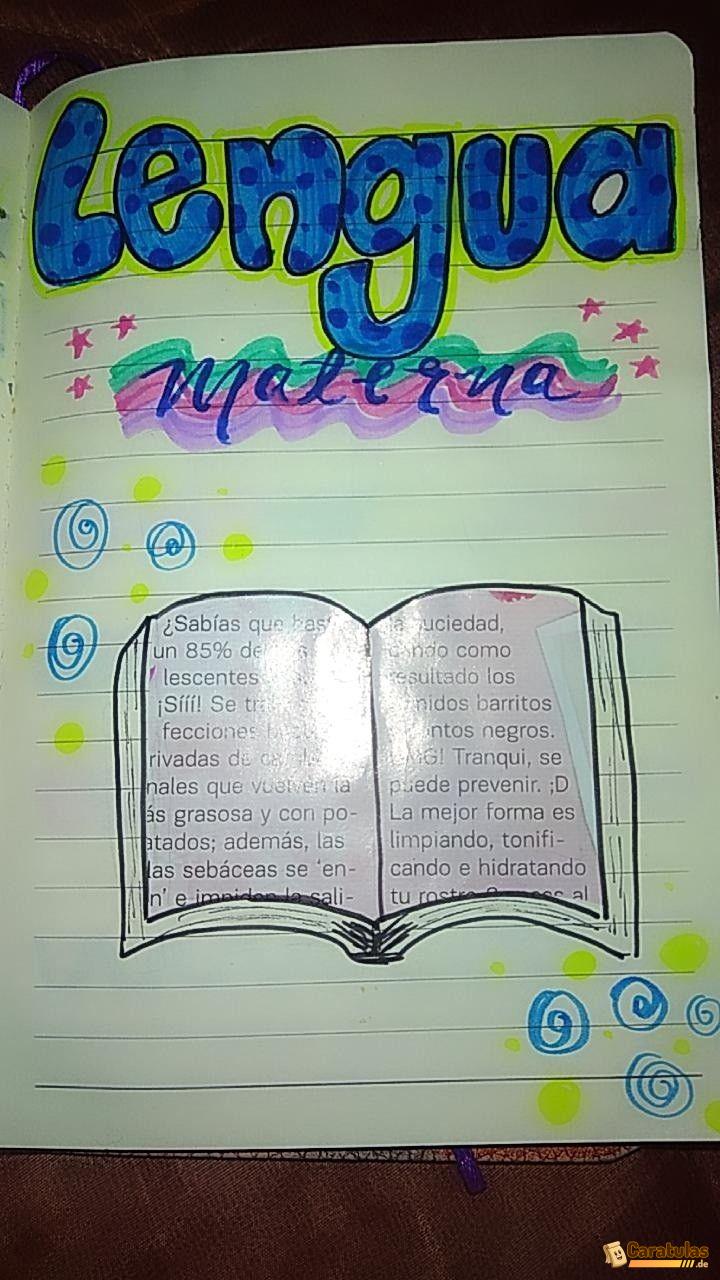 Lengua
materna
¿Sabías que
un 85% de
lescentes
¡Sííí! Se
fecciones
rivadas de
nales que vuelven la
ás grasosa y con po-
atados; además, las
las sebáceas se 'en-
n' e impiden la sali-
la suciedad,
dando como
resultado los
barritos
puntos negros.
Tranqui, se
puede prevenir. ;D
La mejor forma es
limpiando, tonifi-
cando e hidratando
tu rostro
al
Caratulas
.de